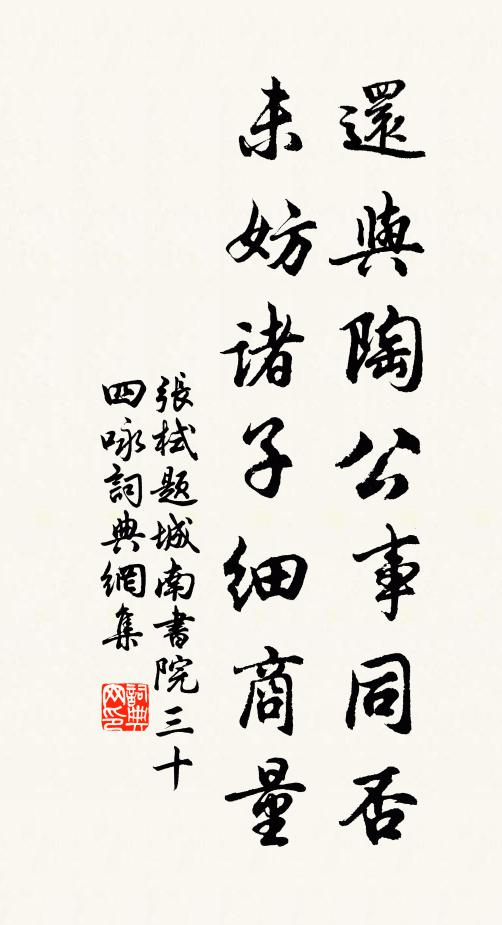 還與陶公事同否
未妨諸子細商量
張栻题城南書院三十
四咏詞典網集
詞典网印